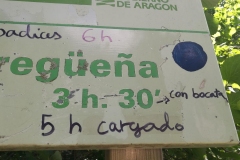 DE ARAGON
6h.
regüeña
3 h. 30' → con bocata
5 h cargado